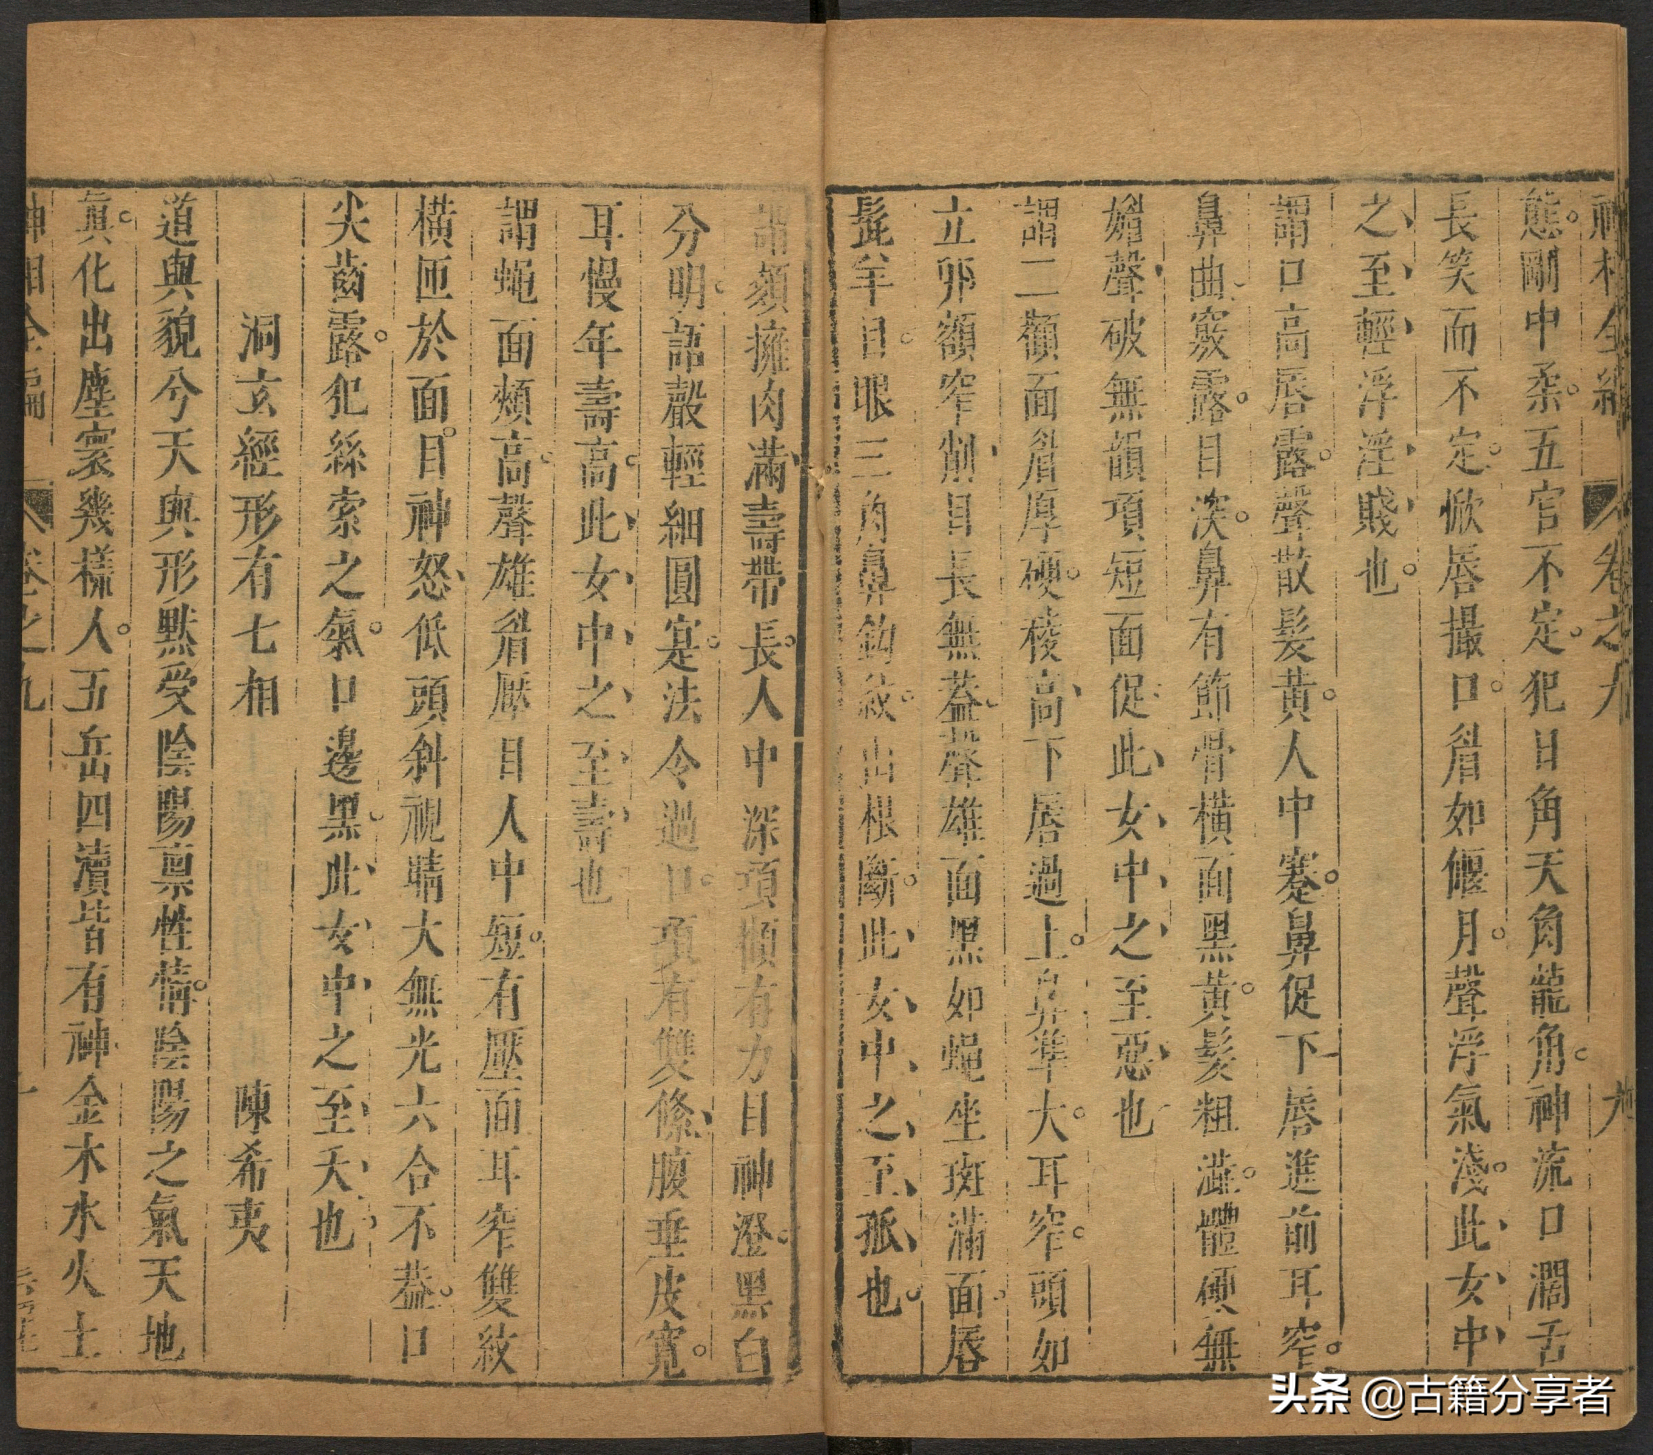 神相全編 卷之九 九
態剛中柔五官不定犯日角天角龍角神流口濶舌
長笑而不定掀唇撮口眉如偃月聲浮氣淺此女中
之至輕浮淫賤也
謂口高唇露聲散髮黃人中蹇鼻促下唇進前耳窄
鼻曲竅露目深鼻有節骨橫面黑黃髮粗澁體硬無
媚聲破無韻項短面促此女中之至惡也
謂二顴面眉厚硬稜高下唇過上鼻準大耳窄頭如
立卵額窄削目長無蓋聲雄面黑如蠅坐斑滿面唇
髭羊目眼三角鼻鈎紋山根斷此女中之至孤也
謂頦擁肉滿壽帶長人中深項傾有力目神澄黑白
分明語聲輕細圓寔法令過口項有雙絛腹垂皮寬
耳慢年壽高此女中之至壽也
謂蠅面頰高聲雄眉壓目人中短有壓面耳窄雙紋
橫匝於面目神怒低頭斜視睛大無光六合不蓋口
尖齒露犯絲索之氣口邊黑此女中之至夭也
洞玄經形有七相 陳希夷
道與貌兮天與形黙受陰陽禀性情陰陽之氣天地
眞化出塵寰幾樣人五岳四瀆皆有神金木水火土
神相全編 卷之九
头条 @古籍分享者